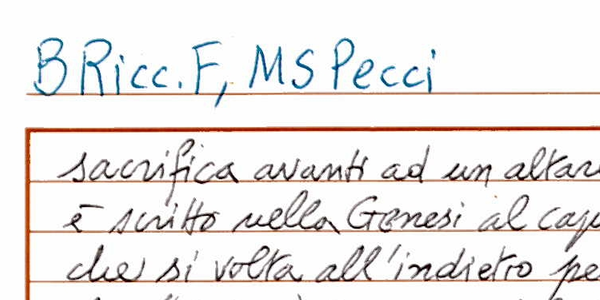 B Ricc. F, MS Pecci
sacrifica avanti ad un altar
è scritto nella Genesi al cap
che si volta all'indietro pe